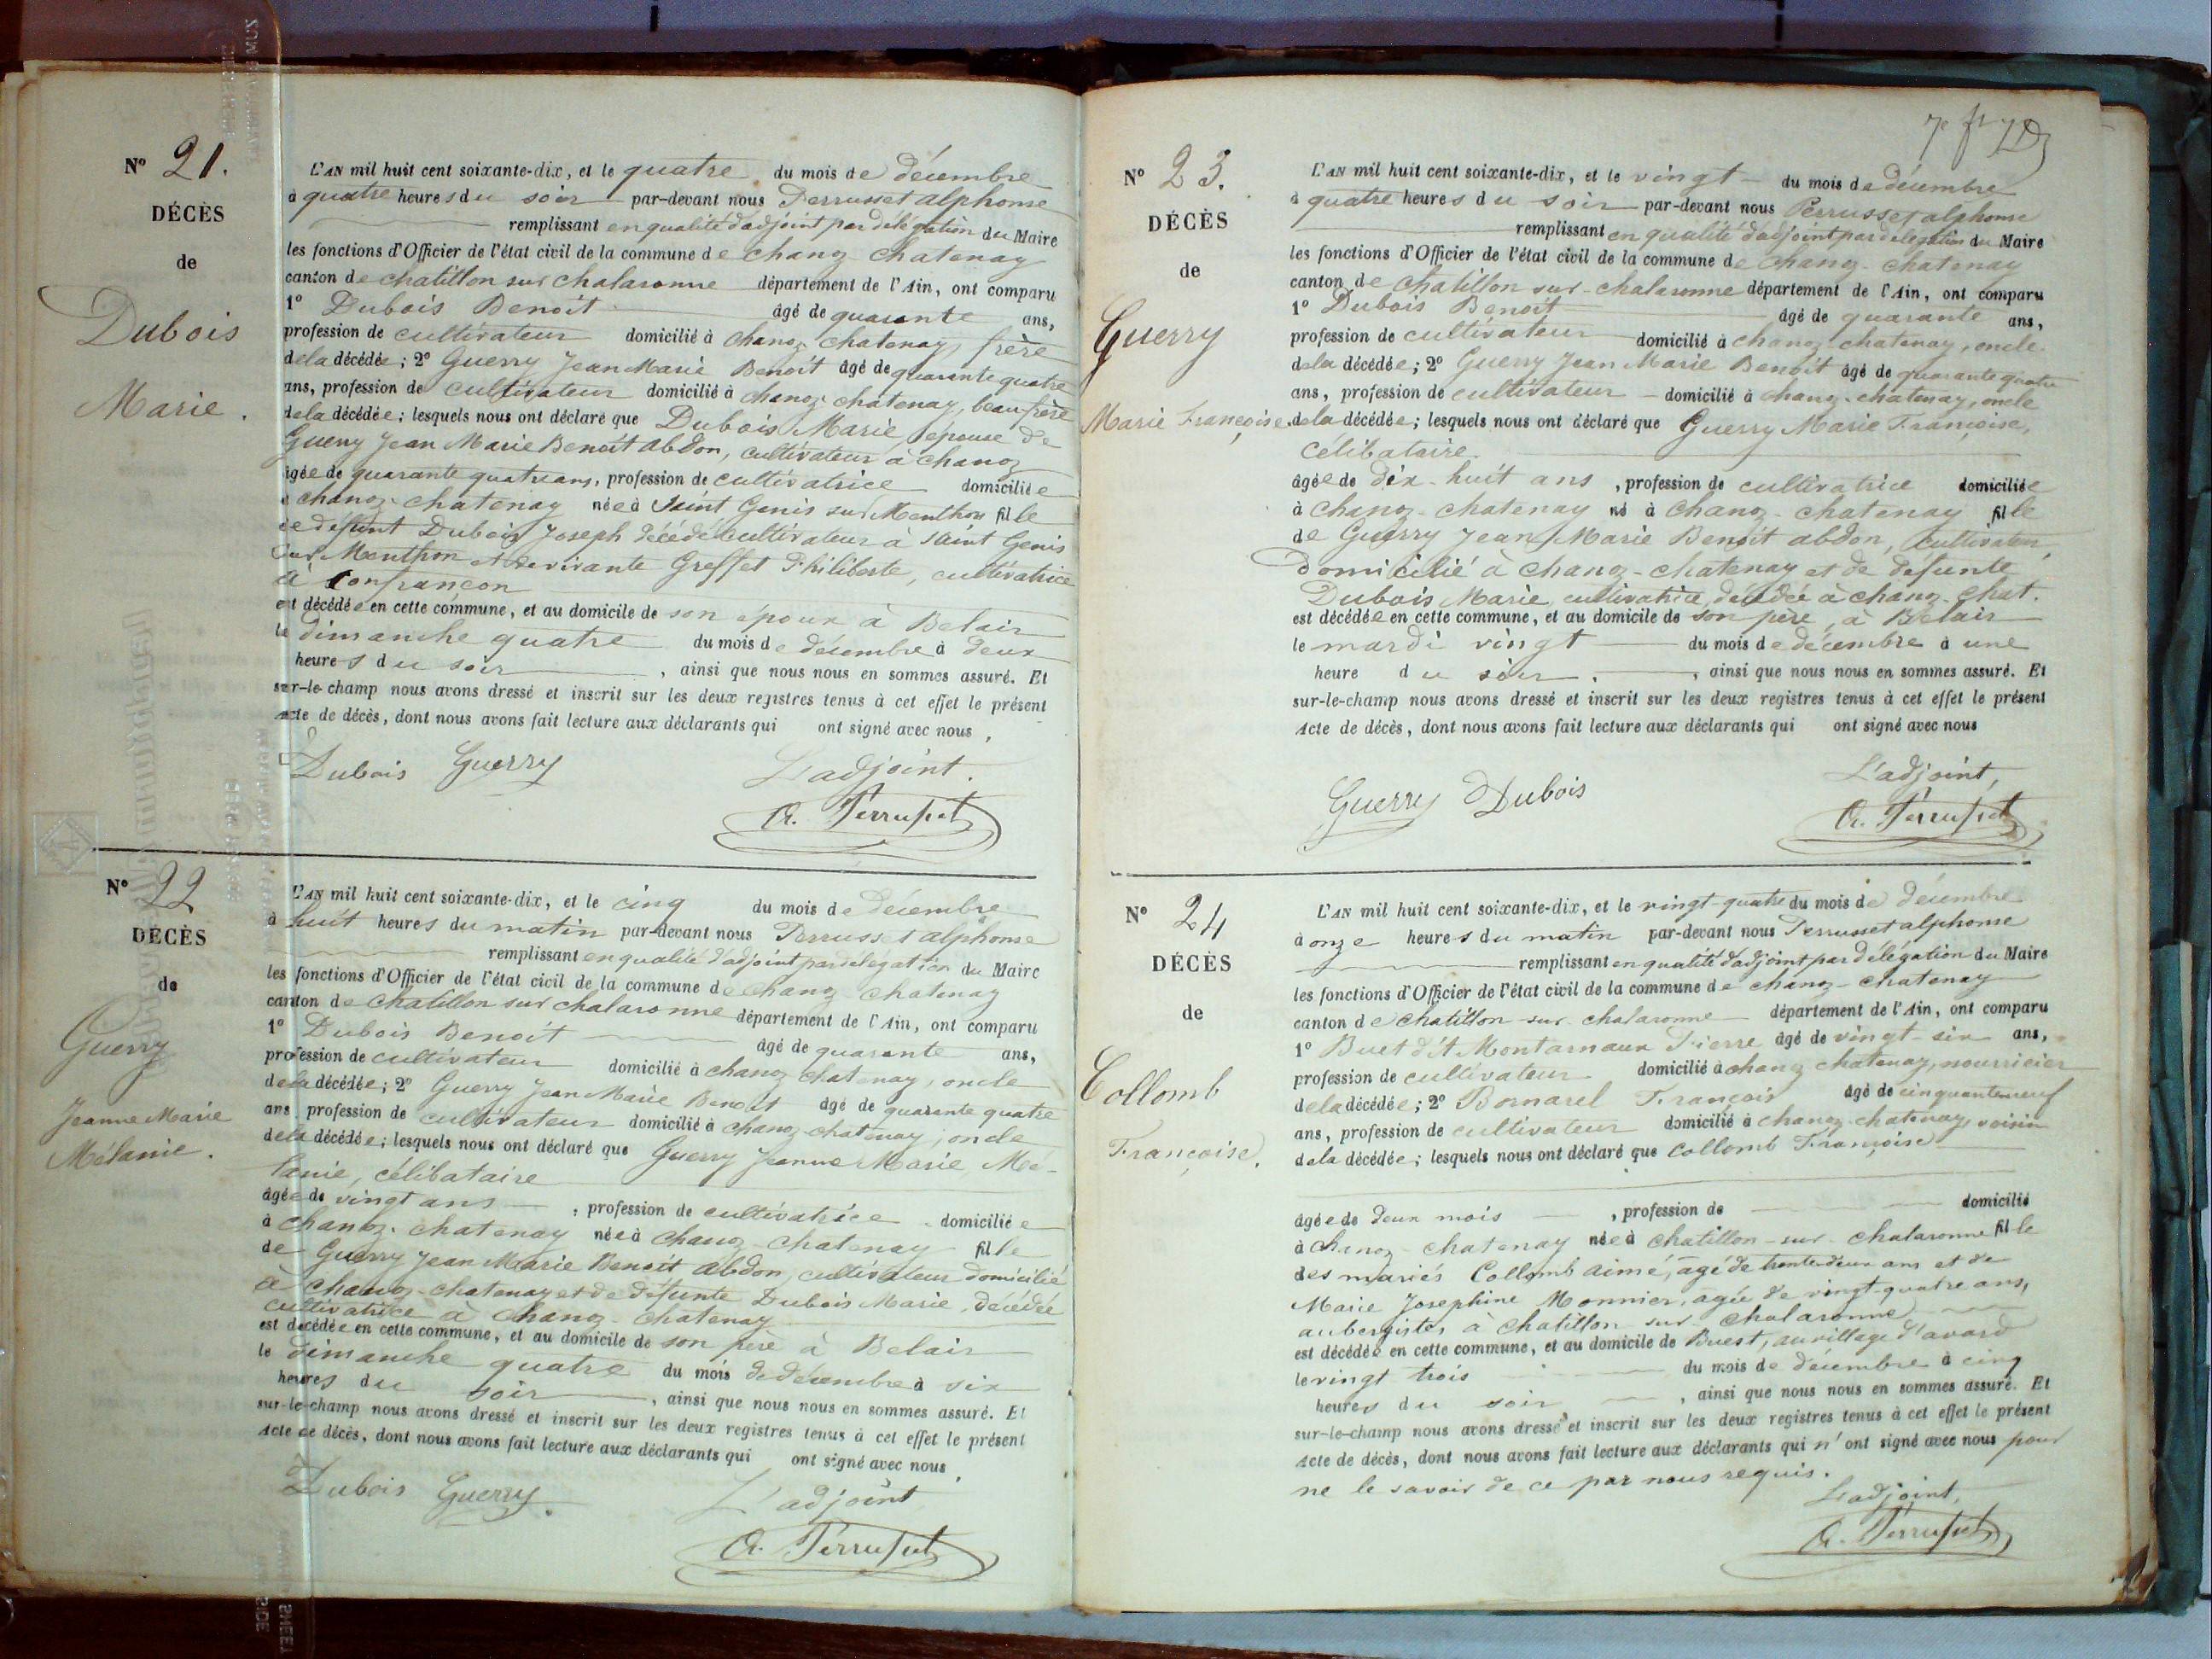 N° 21.
DÉCÈS
de
Dubois
Marie.
L'AN mil huit cent soixante-dix, et le quatre du mois de décembre
à quatre heures du soir par-devant nous Perrusset alphonse
remplissant en qualité d'adjoint par délégation du Maire
les fonctions d'Officier de l'état civil de la commune de chanoz chatenay
canton de chatillon sur chalaronne département de l'Ain, ont comparu
1° Dubois Benoit âgé de quarante ans,
profession de cultivateur domicilié à chanoz chatenay, frère
de la décédée; 2° Guerry Jean Marie Benoit âgé de quarante quatre
ans, profession de cultivateur domicilié à chanoz chatenay, beau frère
de la décédée; lesquels nous ont déclaré que Dubois Marie, épouse de
Guerry Jean Marie Benoit abdon, cultivateur à chanoz
âgée de quarante quatre ans, profession de cultivatrice domiciliée
à chanoz-chatenay née à Saint Genis sur Menthon fille
de défunt Dubois Joseph décédé cultivateur à Saint Genis
sur Menthon et de vivante Greffet Philiberte, cultivatrice
à Confrançon
est décédée en cette commune, et au domicile de son époux à Belair
le dimanche quatre du mois de décembre à deux
heures du soir, ainsi que nous nous en sommes assuré. Et
sur-le-champ nous avons dressé et inscrit sur les deux registres tenus à cet effet le présent
Acte de décès, dont nous avons fait lecture aux déclarants qui ont signé avec nous.
Dubois Guerry L'adjoint.
A. Perrusset
N° 22
DÉCÈS
de
Guerry
Jeanne Marie
Mélanie.
L'AN mil huit cent soixante-dix, et le cinq du mois de décembre
à huit heures du matin par-devant nous Perrusset alphonse
remplissant en qualité d'adjoint par délégation du Maire
les fonctions d'Officier de l'état civil de la commune de chanoz chatenay
canton de chatillon sur chalaronne département de l'Ain, ont comparu
1° Dubois Benoit âgé de quarante ans,
profession de cultivateur domicilié à chanoz chatenay, oncle
de la décédée; 2° Guerry Jean Marie Benoit âgé de quarante quatre
ans profession de cultivateur domicilié à chanoz-chatenay, oncle
de la décédée; lesquels nous ont déclaré que Guerry Jeanne Marie Mé-
lanie, célibataire
âgée de vingt ans, profession de cultivatrice domiciliée
à chanoz-chatenay née à chanoz-chatenay fille
de Guerry Jean Marie Benoit abdon, cultivateur domicilié
à chanoz-chatenay et de défunte Dubois Marie, décédée
cultivatrice à chanoz-chatenay
est décédée en cette commune, et au domicile de son père à Belair
le dimanche quatre du mois de décembre à six
heures du soir, ainsi que nous nous en sommes assuré. Et
sur-le-champ nous avons dressé et inscrit sur les deux registres tenus à cet effet le présent
Acte de décès, dont nous avons fait lecture aux déclarants qui ont signé avec nous.
Dubois Guerry. L'adjoint
A. Perrusset
N° 23.
DÉCÈS
de
Guerry
Marie Françoise.
L'AN mil huit cent soixante-dix, et le vingt du mois de décembre
à quatre heures du soir par-devant nous Perrusset alphonse
remplissant en qualité d'adjoint par délégation du Maire
les fonctions d'Officier de l'état civil de la commune de chanoz-chatenay
canton de chatillon sur-chalaronne département de l'Ain, ont comparu
1° Dubois Benoit âgé de quarante ans,
profession de cultivateur domicilié à chanoz-chatenay, oncle
de la décédée; 2° Guerry Jean Marie Benoit âgé de quarante quatre
ans, profession de cultivateur domicilié à chanoz-chatenay, oncle
de la décédée; lesquels nous ont déclaré que Guerry Marie Françoise,
célibataire.
âgée de dix-huit ans, profession de cultivatrice domiciliée
à chanoz-chatenay né à chanoz-chatenay fille
de Guerry Jean Marie Benoit abdon, cultivateur,
domicilié à chanoz-chatenay et de défunte
Dubois Marie, cultivatrice, décédée à chanoz-chat.
est décédée en cette commune, et au domicile de son père, à Belair
le mardi vingt du mois de décembre à une
heure du soir, ainsi que nous nous en sommes assuré. Et
sur-le-champ nous avons dressé et inscrit sur les deux registres tenus à cet effet le présent
Acte de décès, dont nous avons fait lecture aux déclarants qui ont signé avec nous
Guerry Dubois L'adjoint,
A. Perrusset
N° 24
DÉCÈS
de
Collomb
Françoise.
L'AN mil huit cent soixante-dix, et le vingt-quatre du mois de décembre
à onze heures du matin par-devant nous Perrusset alphonse
remplissant en qualité d'adjoint par délégation du Maire
les fonctions d'Officier de l'état civil de la commune de chanoz-chatenay
canton de chatillon-sur-chalaronne département de l'Ain, ont comparu
1° Buet dit Montarnaux Pierre âgé de vingt-six ans,
profession de cultivateur domicilié à chanoz chatenay, nourricier
de la décédée; 2° Bornarel François âgé de cinquante neuf
ans, profession de cultivateur domicilié à chanoz-chatenay, voisin
de la décédée; lesquels nous ont déclaré que Collomb Françoise
âgée de deux mois, profession de domicilié
à chanoz-chatenay née à chatillon-sur-chalaronne fille
des mariés Collomb aimé, âgé de trente-deux ans et de
Marie Josephine Monnier, agée de vingt-quatre ans,
aubergistes à chatillon sur chalaronne
est décédée en cette commune, et au domicile de Buest, au village d'avard
le vingt trois du mois de décembre à cinq
heures du soir, ainsi que nous nous en sommes assuré. Et
sur-le-champ nous avons dressé et inscrit sur les deux registres tenus à cet effet le présent
Acte de décès, dont nous avons fait lecture aux déclarants qui n'ont signé avec nous pour
ne le savoir de ce par nous requis.
L'adjoint,
A. Perrusset